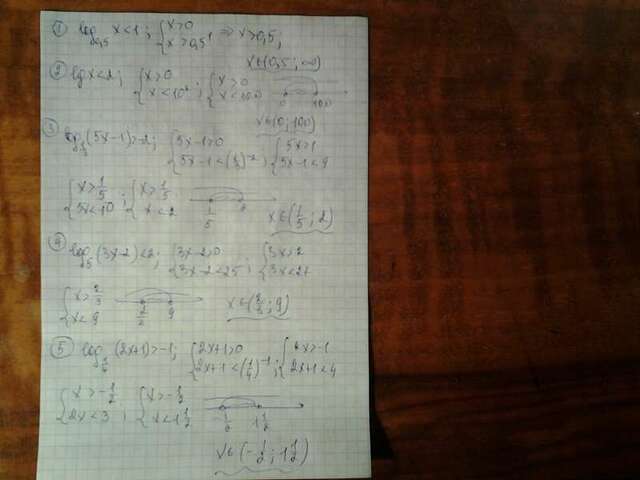 ① log₀,₅ x<1; {x>0 {x>0,5¹ ⇒ x>0,5;
x∈(0,5; ∞)
② lgx<2; {x>0 {x<10²; {x>0 {x<100 0 100
x∈(0; 100)
③ log (5x-1)>-2; {5x-1>0 {5x-1<(1/3)⁻²; {5x>1 {5x-1<9
{x>1/5 {5x<10; {x>1/5 {x<2 1/5 2 x∈(1/5; 2)
④ log₅(3x-2)<2; {3x-2>0 {3x-2<25; {3x>2 {3x<27
{x>2/3 {x<9 9 x∈(2/3; 9)
⑤ log (2x+1)>-1; {2x+1>0 {2x+1<(1/4)⁻¹; { x>-1 {2x+1<4
{x>-1/2 {2x<3; {x>-1/2 {x<1 1/2 -1/2 1 1/2
x∈(-1/2; 1 1/2)